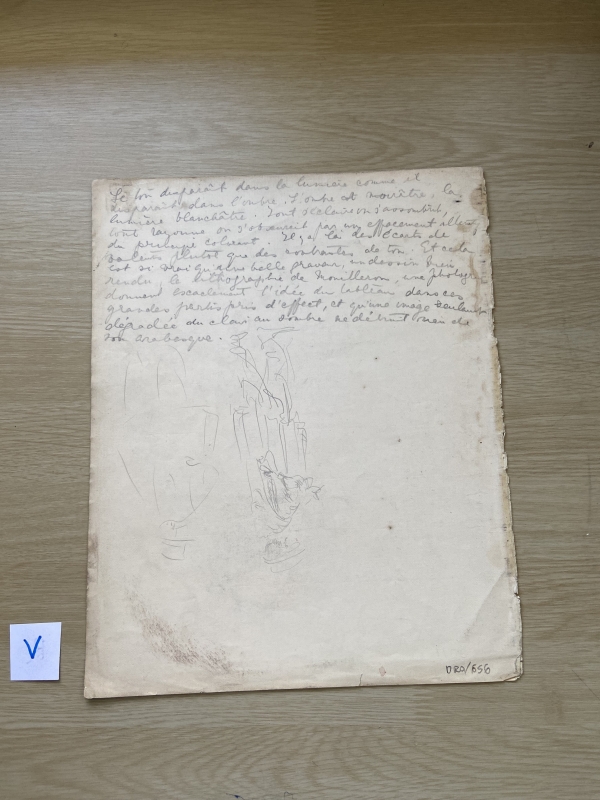 Le ton disparait dans la lumière comme il
disparait dans l'ombre. L'ombre est noirâtre, la
lumière blanchâtre. Tout s'éclaire ou s'assombrit,
tout rayonne ou s'obscurcit par un effacement
du principe colorant. Il y a là des écarts de
valeurs plutôt que des contrastes de ton. Et cela
est si vrai qu'une belle gravure, un dessin bien
rendu, la lithographie de Mouilleron, une photogr
donnent exactement l'idée du tableau dans ses
grands partis pris d'effet, et qu'une image seulement
dégradée du clair au sombre ne détruit rien de
son arabesque.
V
DRO/656